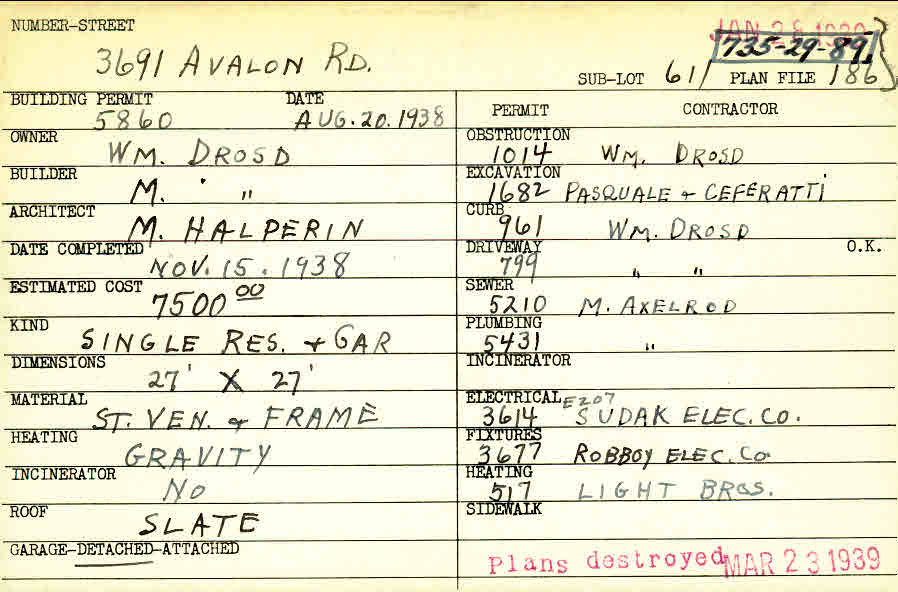 NUMBER-STREET
JAN 28 1939
735-29-89
3691 AVALON RD.
SUB-LOT 611 PLAN FILE 186
BUILDING PERMIT DATE
5860 AUG. 20. 1938
OWNER
WM. DROSD
BUILDER
M. " "
ARCHITECT
M. HALPERIN
DATE COMPLETED
NOV. 15. 1938
ESTIMATED COST
7500 00
KIND
SINGLE RES. + GAR
DIMENSIONS
27' X 27'
MATERIAL
ST. VEN. & FRAME
HEATING
GRAVITY
INCINERATOR
NO
ROOF
SLATE
GARAGE-DETACHED-ATTACHED
PERMIT CONTRACTOR
OBSTRUCTION
1014 WM. DROSD
EXCAVATION
1682 PASQUALE + CEFERATTI
CURB
961 WM. DROSD
DRIVEWAY O.K.
799 " "
SEWER
5210 M. AXELROD
PLUMBING
5431 "
INCINERATOR
ELECTRICAL E207
3614 SUDAK ELEC. CO.
FIXTURES
3677 ROBBOY ELEC. CO
HEATING
517 LIGHT BROS.
SIDEWALK
Plans destroyed MAR 23 1939